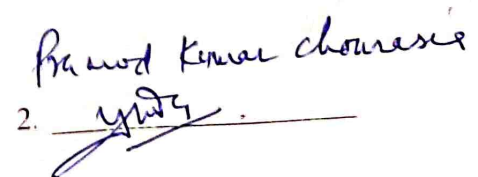 Pramod Kumar Chourasia
2. प्रमोद